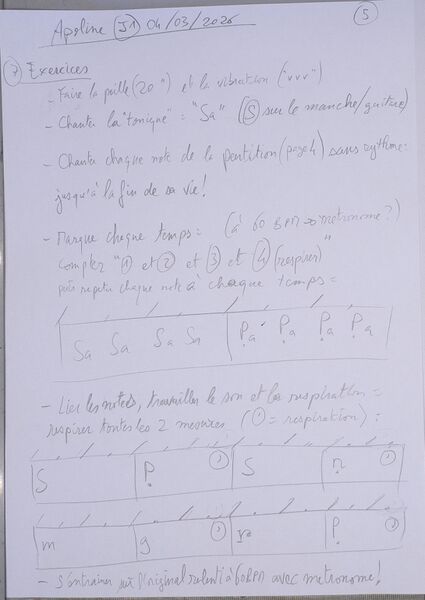 Apoline (J1) 04/03/2026 (5)
(7) Exercices
- Faire la paille (20") et la vibration ("vvv")
- Chanter la "tonique" = "Sa" (S sur le manche/guitare)
- Chanter chaque note de la partition (page 4) sans rythme:
jusqu'à la fin de sa vie!
- Marque chaque temps: (à 60 BPM → metronome?)
Compter "1 et 2 et 3 et 4 (respirer)"
puis repeter chaque note à chaque temps =
Sa Sa Sa Sa Pa Pa Pa Pa
- Lier les notes, travailler le son et la respiration =
respirer toutes les 2 mesures (' = respiration) :
S P ' S n '
m g ' r P '
- S'entrainer sur l'original ralenti à 60 BPM avec metronome!